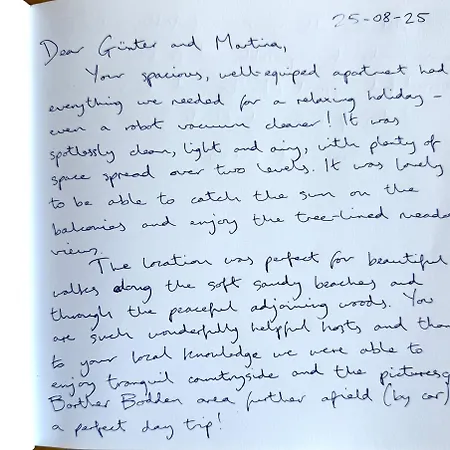 25-08-25
Dear Günter and Martina,
Your spacious, well-equiped apartment had
everything we needed for a relaxing holiday -
even a robot vacuum cleaner! It was
spotlessly clean, light and airy, with plenty of
space spread over two levels. It was lovely
to be able to catch the sun on the
balconies and enjoy the tree-lined meado
views.
The location was perfect for beautiful
walks along the soft sandy beaches and
through the peaceful adjoining woods. You
are such wonderfully helpful hosts and than
to your local knowledge we were able to
enjoy tranquil countryside and the picturesq
Barther Bodden area further afield (by car)
a perfect day trip!